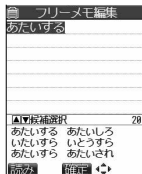 フリーメモ編集
あたいする
▲▼候補選択 20
あたいする あたいしろ
いたいする いとうする
あたいすら あたいされ
読み 確定